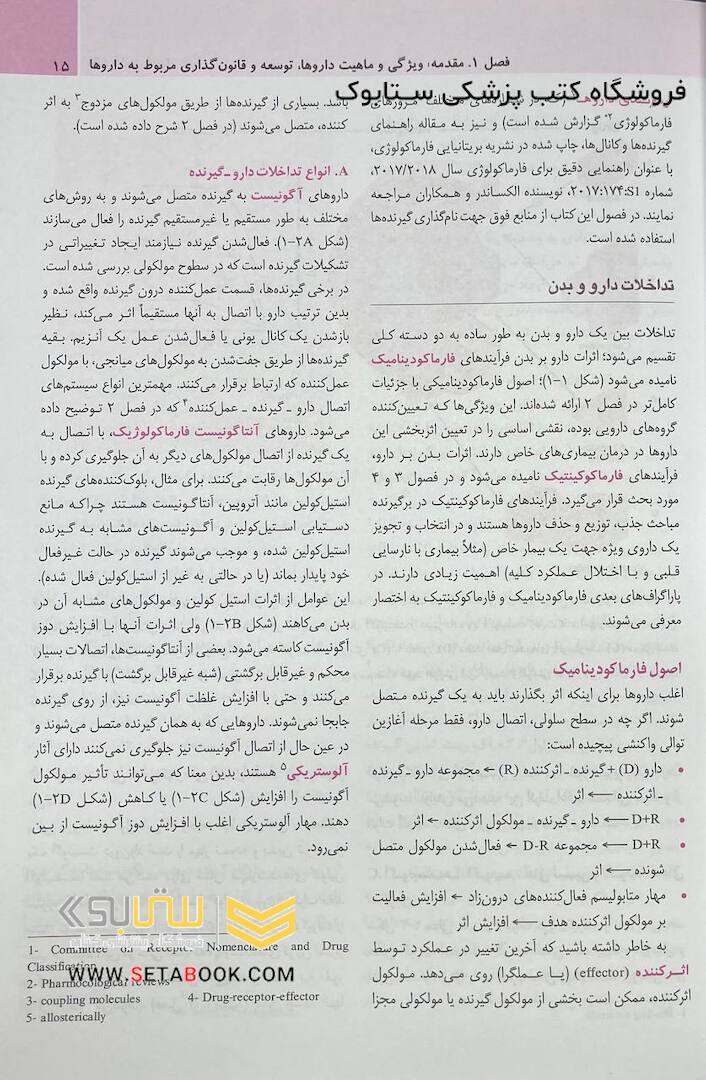 فصل ۱. مقدمه؛ ویژگی و ماهیت داروها، توسعه و قانون‌گذاری مربوط به داروها ۱۵
فروشگاه کتب پزشکی ستابوک
فارماکولوژی۲" گزارش شده است) و نیز به مقاله راهنمای
گیرنده‌ها و کانال‌ها، چاپ شده در نشریه بریتانیایی فارماکولوژی،
با عنوان راهنمایی دقیق برای فارماکولوژی سال ۲۰۱۷/۲۰۱۸،
شماره ۲۰۱۷:۱۷۴:S1، نویسنده الکساندر و همکاران مراجعه
نمایند. در فصول این کتاب از منابع فوق جهت نام‌گذاری گیرنده‌ها
استفاده شده است.
تداخلات دارو و بدن
تداخلات بین یک دارو و بدن به طور ساده به دو دسته کلی
تقسیم می‌شود؛ اثرات دارو بر بدن فرآیندهای فارماکودینامیک
نامیده می‌شود (شکل ۱-۱)؛ اصول فارماکودینامیکی با جزئیات
کامل‌تر در فصل ۲ ارائه شده‌اند. این ویژگی‌ها که تعیین‌کننده
گروه‌های دارویی بوده، نقشی اساسی را در تعیین اثربخشی این
داروها در درمان بیماری‌های خاص دارند. اثرات بدن بر دارو،
فرآیندهای فارماکوکینتیک نامیده می‌شود و در فصول ۳ و ۴
مورد بحث قرار می‌گیرد. فرآیندهای فارماکوکینتیک در برگیرنده
مباحث جذب، توزیع و حذف داروها هستند و در انتخاب و تجویز
یک داروی ویژه جهت یک بیمار خاص (مثلاً بیماری با نارسایی
قلبی و با اختلال عملکرد کلیه) اهمیت زیادی دارند. در
پاراگراف‌های بعدی فارماکودینامیک و فارماکوکینتیک به اختصار
معرفی می‌شوند.
اصول فارماکودینامیک
اغلب داروها برای اینکه اثر بگذارند باید به یک گیرنده متصل
شوند. اگر چه در سطح سلولی، اتصال دارو، فقط مرحله آغازین
توالی واکنشی پیچیده است:
• دارو (D) + گیرنده ـ اثرکننده (R) ← مجموعه دارو ـ گیرنده
ـ اثرکننده ← اثر
• D+R ← دارو ـ گیرنده ـ مولکول اثرکننده ← اثر
• D+R ← مجموعه D-R ← فعال‌شدن مولکول متصل
شونده ← اثر
• مهار متابولیسم فعال‌کننده‌های درون‌زاد ← افزایش فعالیت
بر مولکول اثرکننده هدف ← افزایش اثر
به خاطر داشته باشید که آخرین تغییر در عملکرد توسط
اثرکننده (effector) (یا عملگرا) روی می‌دهد. مولکول
اثرکننده، ممکن است بخشی از مولکول گیرنده یا مولکولی مجزا
باشد. بسیاری از گیرنده‌ها از طریق مولکول‌های مزدوج۳ به اثر
کننده، متصل می‌شوند (در فصل ۲ شرح داده شده است).
A. انواع تداخلات دارو ـ گیرنده
داروهای آگونیست به گیرنده متصل می‌شوند و به روش‌های
مختلف به طور مستقیم یا غیرمستقیم گیرنده را فعال می‌سازند
(شکل ۲A-۱). فعال‌شدن گیرنده نیازمند ایجاد تغییراتی در
تشکیلات گیرنده است که در سطوح مولکولی بررسی شده است.
در برخی گیرنده‌ها، قسمت عمل‌کننده درون گیرنده واقع شده و
بدین ترتیب دارو با اتصال به آنها مستقیماً اثر می‌کند، نظیر
بازشدن یک کانال یونی یا فعال‌شدن عمل یک آنزیم. بقیه
گیرنده‌ها از طریق جفت‌شدن به مولکول‌های میانجی، با مولکول
عمل‌کننده که ارتباط برقرار می‌کنند. مهمترین انواع سیستم‌های
اتصال دارو ـ گیرنده ـ عمل‌کننده۴ که در فصل ۲ توضیح داده
می‌شود. داروهای آنتاگونیست فارماکولوژیک، با اتصال به
یک گیرنده از اتصال مولکول‌های دیگر به آن جلوگیری کرده و با
آن مولکول‌ها رقابت می‌کنند. برای مثال، بلوک‌کننده‌های گیرنده
استیل‌کولین مانند آتروپین، آنتاگونیست هستند چراکه مانع
دستیابی استیل‌کولین و آگونیست‌های مشابه به گیرنده
استیل‌کولین شده، و موجب می‌شوند گیرنده در حالت غیرفعال
خود پایدار بماند (یا در حالتی به غیر از استیل‌کولین فعال شده).
این عوامل از اثرات استیل کولین و مولکول‌های مشابه آن در
بدن می‌کاهند (شکل ۲B-۱) ولی اثرات آنها با افزایش دوز
آگونیست کاسته می‌شود. بعضی از آنتاگونیست‌ها، اتصالات بسیار
محکم و غیرقابل برگشتی (شبه غیرقابل برگشت) با گیرنده برقرار
می‌کنند و حتی با افزایش غلظت آگونیست نیز، از روی گیرنده
جابجا نمی‌شوند. داروهایی که به همان گیرنده متصل می‌شوند و
در عین حال از اتصال آگونیست نیز جلوگیری نمی‌کنند دارای آثار
آلوستریکی۵ هستند، بدین معنا که می‌توانند تأثیر مولکول
آگونیست را افزایش (شکل ۲C-۱) یا کاهش (شکل ۲D-۱)
دهند. مهار آلوستریکی اغلب با افزایش دوز آگونیست از بین
نمی‌رود.
ستابوک
1- Committee on Receptor Nomenclature and Drug
Classification
2- Pharmocological reviews
3- coupling molecules 4- Drug-receptor-effector
5- allosterically
WWW.SETABOOK.COM